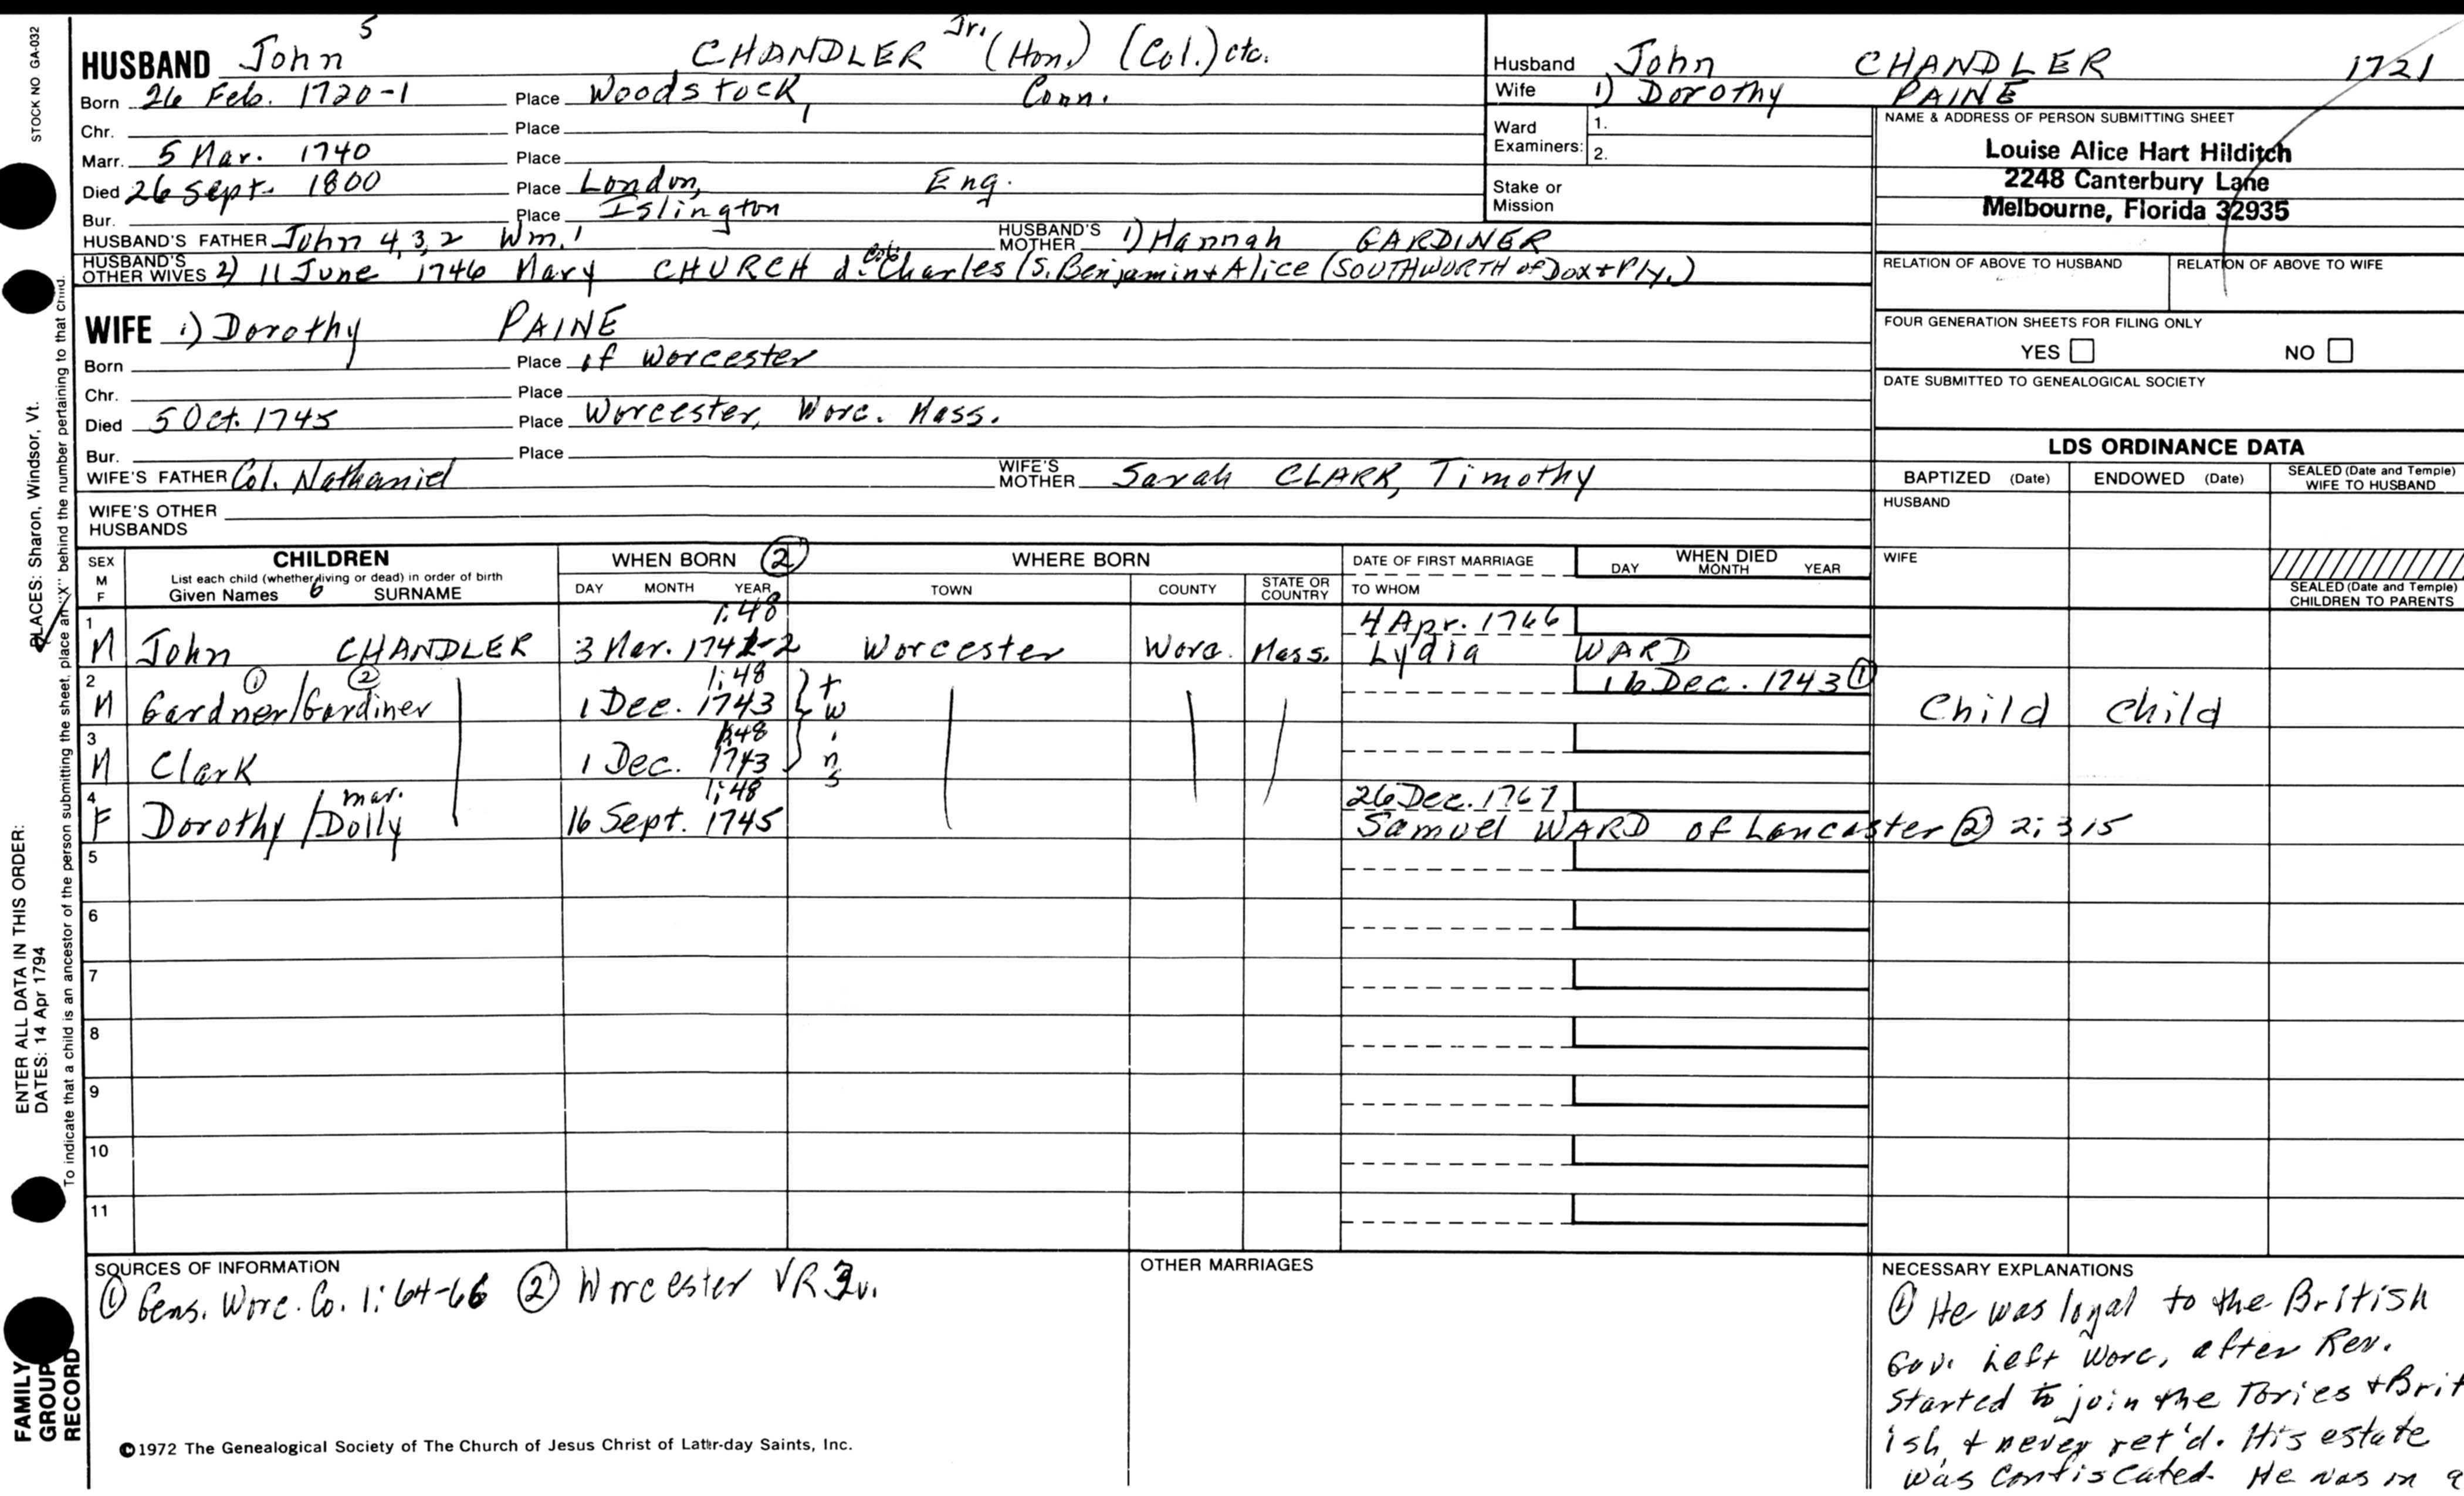 STOCK NO GA-032
HUSBAND John 5 CHANDLER Jr. (Hon.) (Col.) etc.
Born 26 Feb. 1720-1 Place Woodstock, Conn.
Chr. Place
Marr. 5 Mar. 1740 Place
Died 26 Sept. 1800 Place London, Eng.
Bur. Place Islington
HUSBAND'S FATHER John 4,3,2 Wm.1 HUSBAND'S MOTHER 1) Hannah GARDINER
HUSBAND'S OTHER WIVES 2) 11 June 1746 Mary CHURCH d. Col. Charles (S. Benjamin + Alice (SOUTHWORTH of Dox + Ply.)
WIFE 1) Dorothy PAINE
Born Place of Worcester
Chr. Place
Died 5 Oct. 1745 Place Worcester, Worc. Mass.
Bur. Place
WIFE'S FATHER Col. Nathaniel WIFE'S MOTHER Sarah CLARK, Timothy
WIFE'S OTHER HUSBANDS
Husband John CHANDLER 1721
Wife 1) Dorothy PAINE
Ward Examiners: 1.
2.
Stake or Mission
NAME & ADDRESS OF PERSON SUBMITTING SHEET
Louise Alice Hart Hilditch
2248 Canterbury Lane
Melbourne, Florida 32935
RELATION OF ABOVE TO HUSBAND RELATION OF ABOVE TO WIFE
FOUR GENERATION SHEETS FOR FILING ONLY
YES NO
DATE SUBMITTED TO GENEALOGICAL SOCIETY
LDS ORDINANCE DATA
BAPTIZED (Date) ENDOWED (Date) SEALED (Date and Temple) WIFE TO HUSBAND
HUSBAND
WIFE
SEALED (Date and Temple) CHILDREN TO PARENTS
SEX M F CHILDREN WHEN BORN ② WHERE BORN DATE OF FIRST MARRIAGE WHEN DIED
List each child (whether living or dead) in order of birth DAY MONTH YEAR
Given Names 6 SURNAME DAY MONTH YEAR TOWN COUNTY STATE OR COUNTRY TO WHOM
1 1:48 4 Apr. 1766
M John CHANDLER 3 Mar. 1741-2 Worcester Worc. Mass. Lydia WARD
2 ① ② 1:48 16 Dec. 1743 ①
M Gardner/Gardiner 1 Dec. 1743 twins Child Child
3 1:48
M Clark 1 Dec. 1743
4 mar. 1:48 26 Dec. 1767
F Dorothy/Dolly 16 Sept. 1745 Samuel WARD of Lancaster ② 2:315
5
6
7
8
9
10
11
SOURCES OF INFORMATION
① Gens. Worc. Co. 1:64-66 ② Worcester VR 2v.
OTHER MARRIAGES
NECESSARY EXPLANATIONS
① He was loyal to the British
Gov. Left Worc, after Rev.
Started to join the Tories + Brit
ish + never ret'd. His estate
was confiscated. He was in a
©1972 The Genealogical Society of The Church of Jesus Christ of Latter-day Saints, Inc.
FAMILY GROUP RECORD
ENTER ALL DATA IN THIS ORDER:
DATES: 14 Apr 1794
PLACES: Sharon, Windsor, Vt.
To indicate that a child is an ancestor of the person submitting the sheet, place an "X" behind the number pertaining to that child.